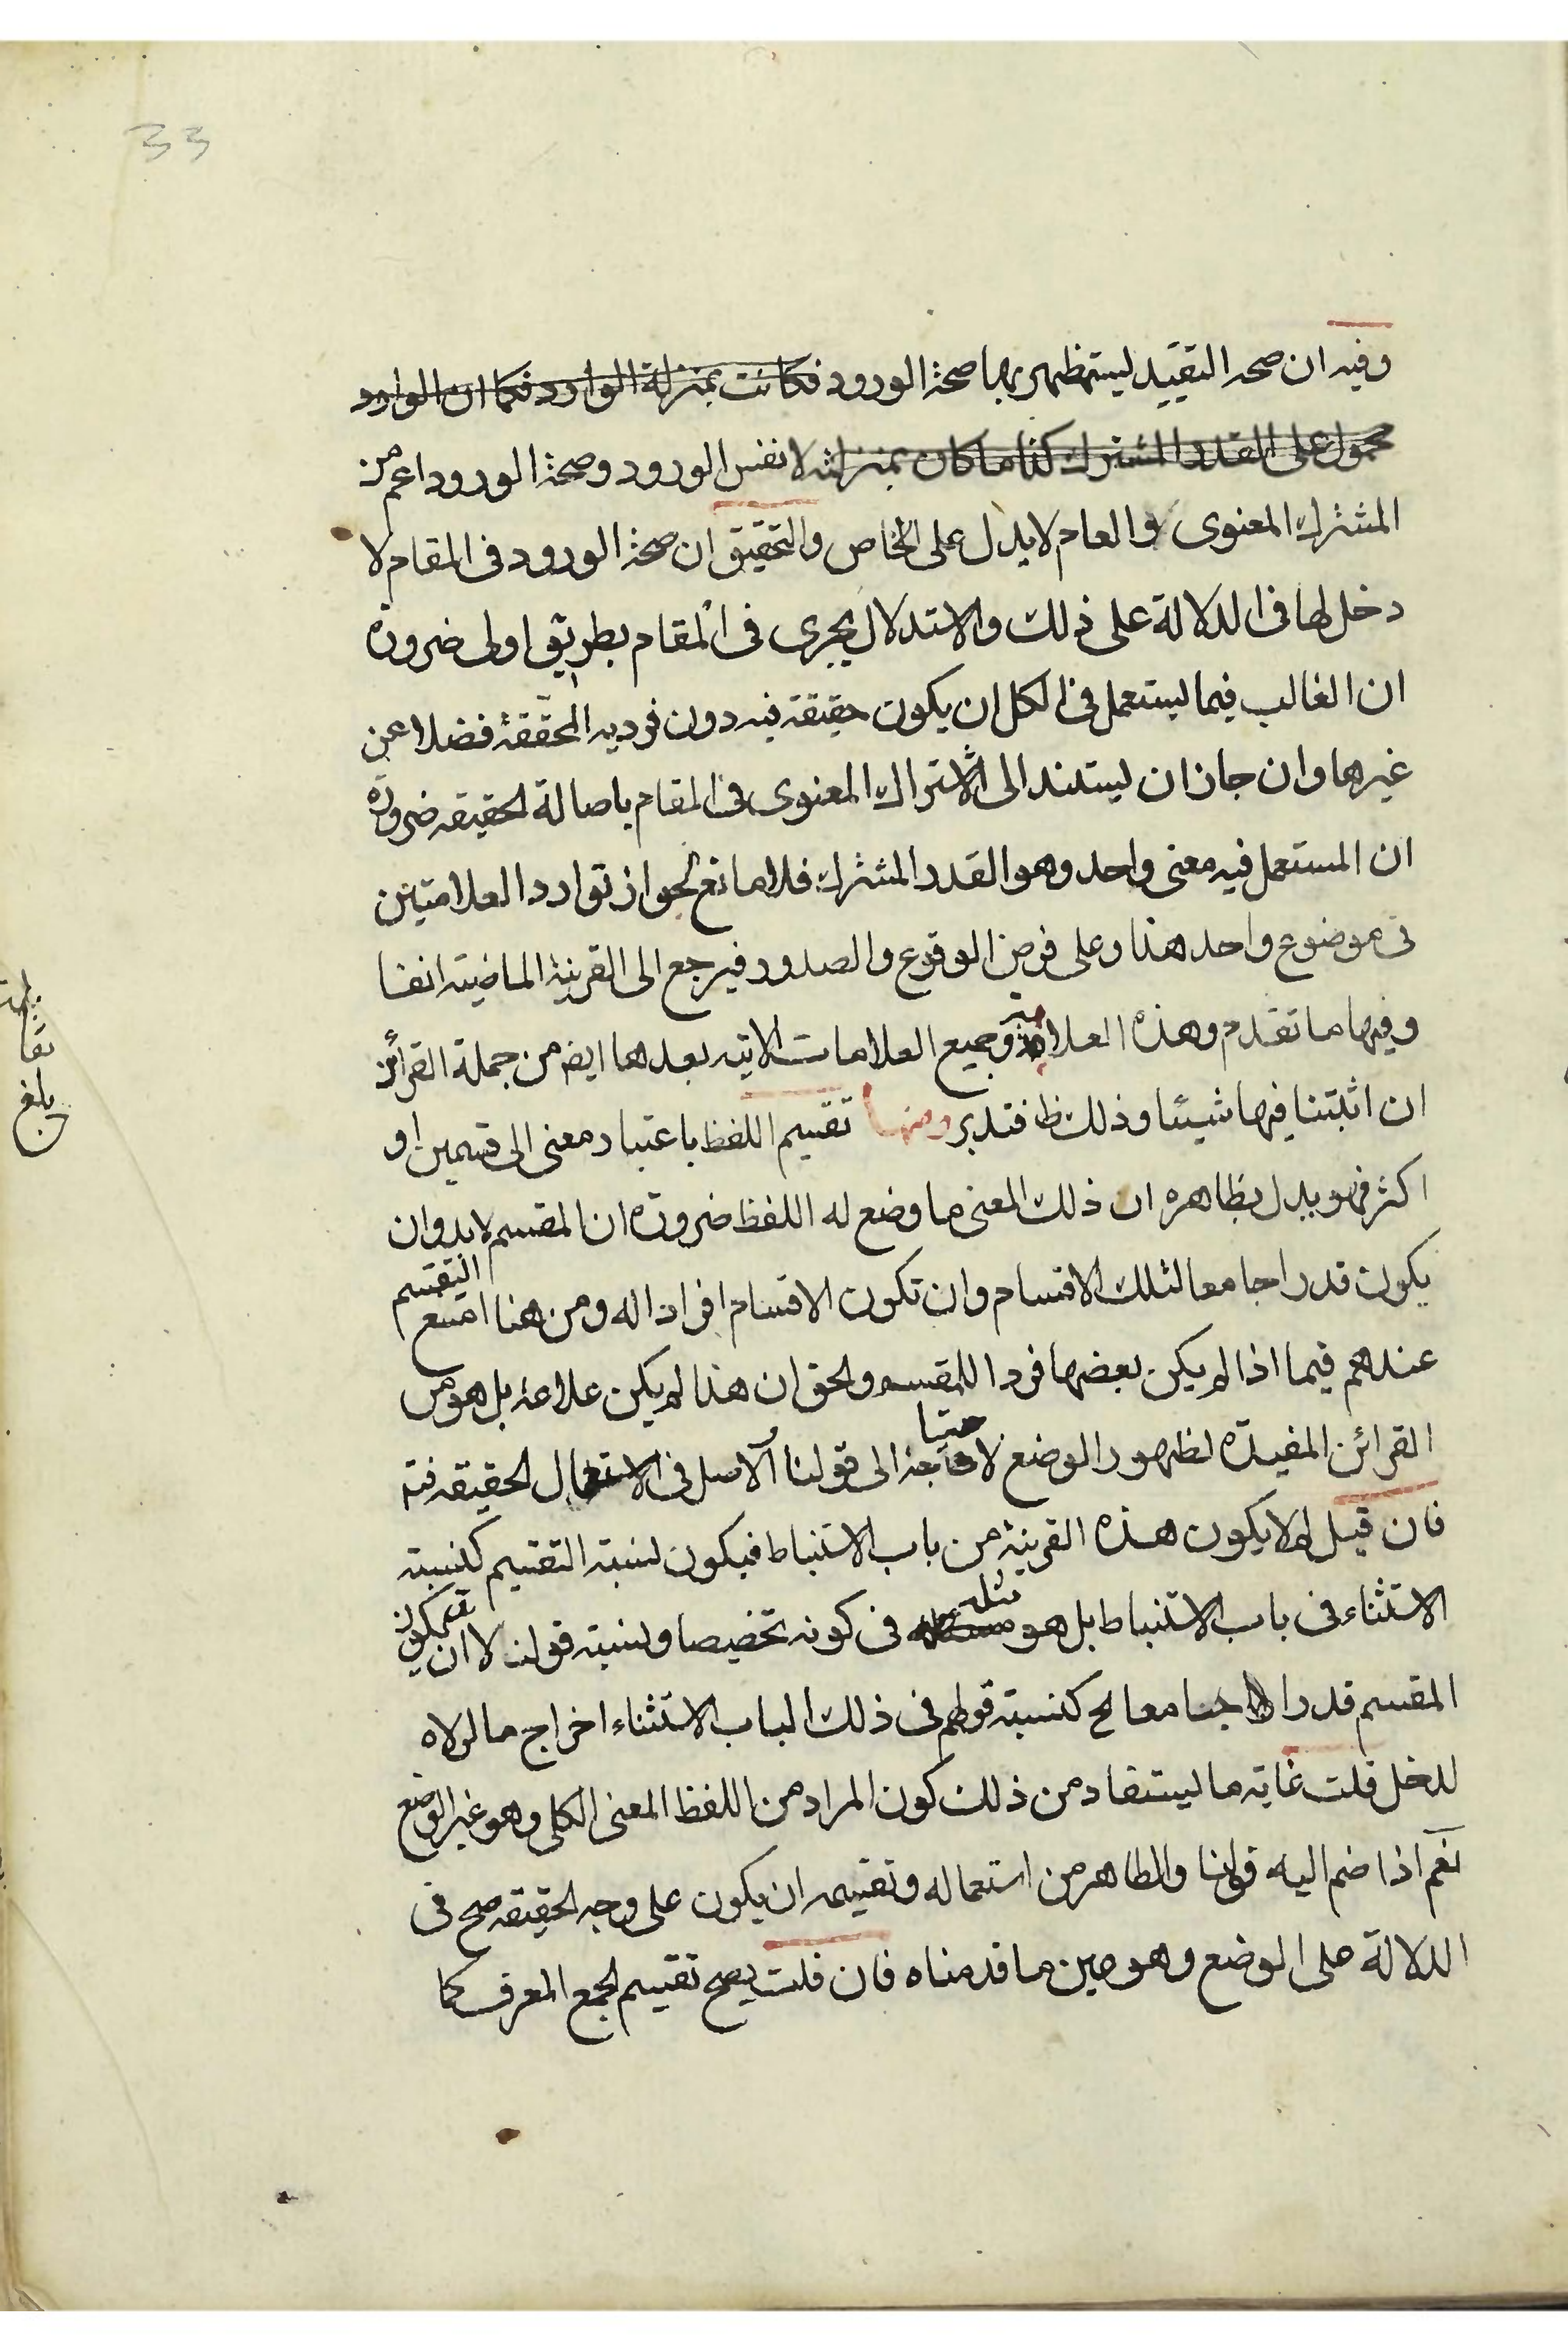 33
وفيه ان صحه التقييد ليستظهر بها صحة الورود فكانت بمنزلة الوارد فكما ان الوارد
محمول على القدر المشترك كذا ما كان بمنزلته لا نفس الورود وصحة الورود اعم من
المشترك المعنوى والعام لا يدل على الخاص والتحقيق ان صحة الورود فى المقام لا
دخل لها فى الدلالة على ذلك والاستدلال يجرى فى المقام بطريق اولى ضرورة
ان الغالب فيما يستعمل فى الكل ان يكون حقيقة فيه دون فرديه المحققة فضلا عن
غيرهما وان جاز ان يستند الى الاشتراك المعنوى فى المقام باصالة الحقيقه ضرورة
ان المستعمل فيه معنى واحد وهو القدر المشترك فلا مانع لجواز توارد العلامتين
فى موضوع واحد هذا وعلى فرض الوقوع والصدور فيرجع الى القرينة الماضية انفا
وفيها ما تقدم وهذه العلامة وجميع العلامات الاتيه بعدها ايضا من جملة القرائن
ان اثبتنا فيها شيئا وذلك ظ فتدبر ومنها تقسيم اللفظ باعتبار معنى الى قسمين او
اكثر فهو يدل بظاهره ان ذلك المعنى ما وضع له اللفظ ضرورة ان المقسم لا بد وان
يكون قدرا جامعا لتلك الاقسام وان تكون الاقسام افرادا له ومن هنا امتنع التقسيم
عندهم فيما اذا لم يكن بعضها فردا للمقسم والحق ان هذا لم يكن علامة بل هو من
القرائن المفيدة لظهور الوضع لاحتياجنا الى قولنا الاصل فى الاستعمال الحقيقه فتد
فان قيل لم لا يكون هذه القرينة من باب الاستنباط فيكون نسبة التقسيم كنسبة
الاستثناء فى باب الاستنباط بل هو مثله فى كونه تخصيصا ونسبة قولنا لا بد ان يكون
المقسم قدرا جامعا الخ كنسبة قولهم فى ذلك الباب الاستثناء اخراج ما لولاه
لدخل قلت غاية ما يستفاد من ذلك كون المراد من اللفظ المعنى الكلى وهو غير الوضع
نعم اذا ضم اليه قولنا والظاهر من استعماله وتقسيمه ان يكون على وجه الحقيقه صح فى
الدلالة على الوضع وهو عين ما قدمناه فان قلت يصح تقسيم الجمع المعرف كما
بلغ